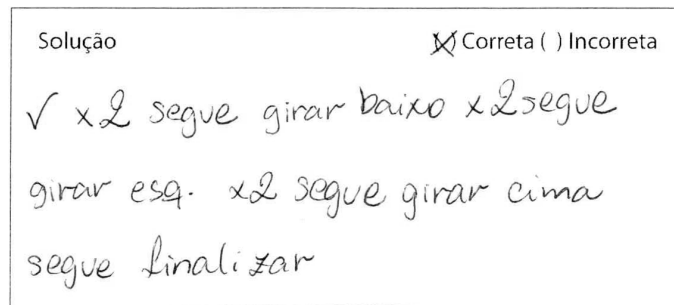 Solução (X) Correta ( ) Incorreta
√ x2 segue girar baixo x2 segue
girar esq. x2 segue girar cima
segue finalizar